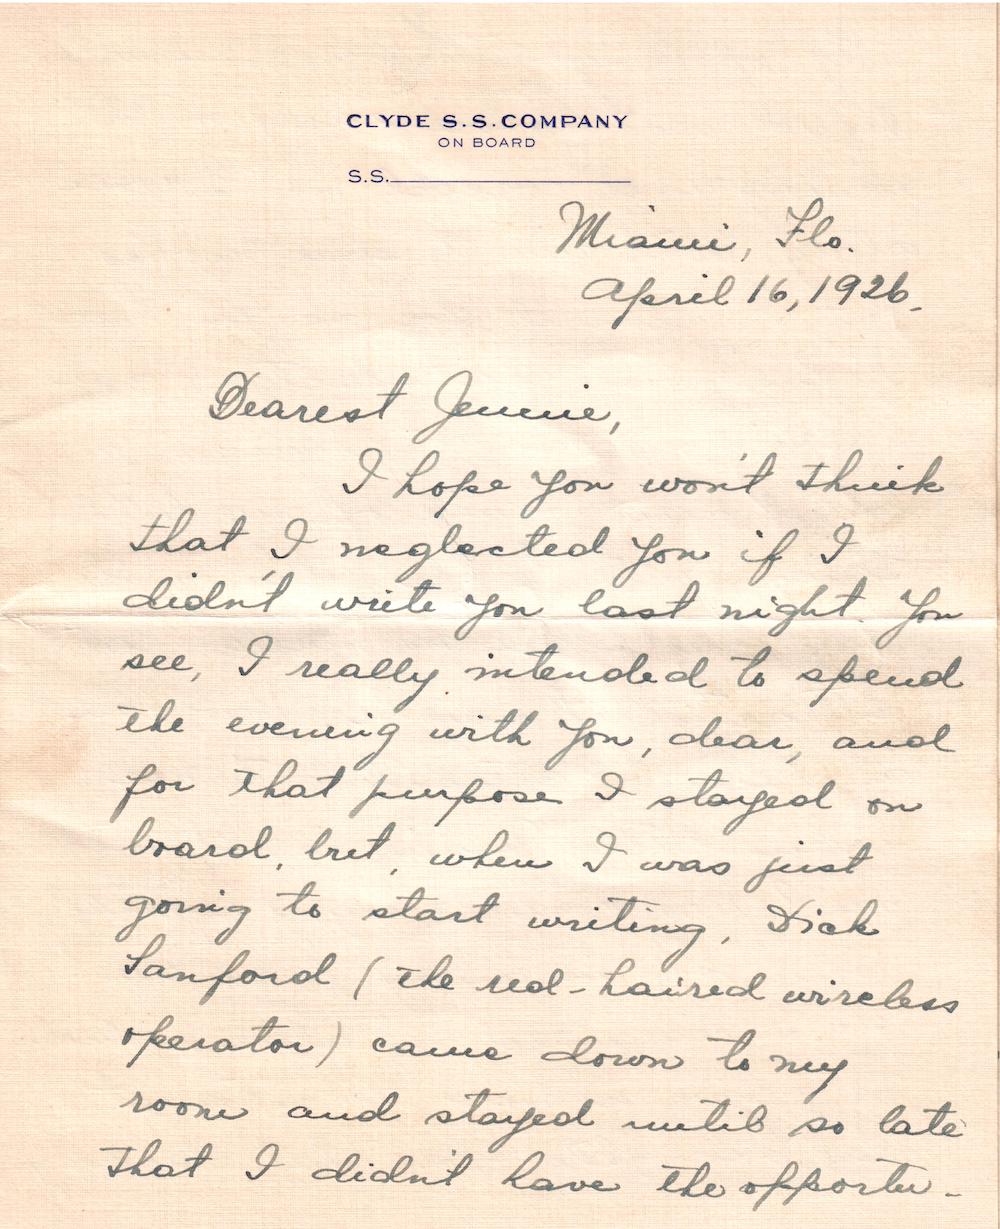 CLYDE S.S. COMPANY
ON BOARD
S.S.
Miami, Flo.
April 16, 1926.
Dearest Jennie,
I hope you won't think
that I neglected you if I
didn't write you last night. You
see, I really intended to spend
the evening with you, dear, and
for that purpose I stayed on
board, but, when I was just
going to start writing, Dick
Sanford (the red-haired wireless
operator) came down to my
room and stayed until so late
that I didn't have the opportu-